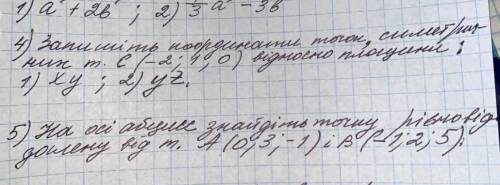 1) a⃗ + 2b⃗ ; 2) 1/3 a⃗ - 3b⃗
4) Запишіть координати точок, симетрич-
них т. C (-2; 1; 0) відносно площини:
1) xy ; 2) yz.
5) На осі абсцис знайдіть точку рівновід-
далену від т. A (0; 3; -1) і B (-1; 2; 5).